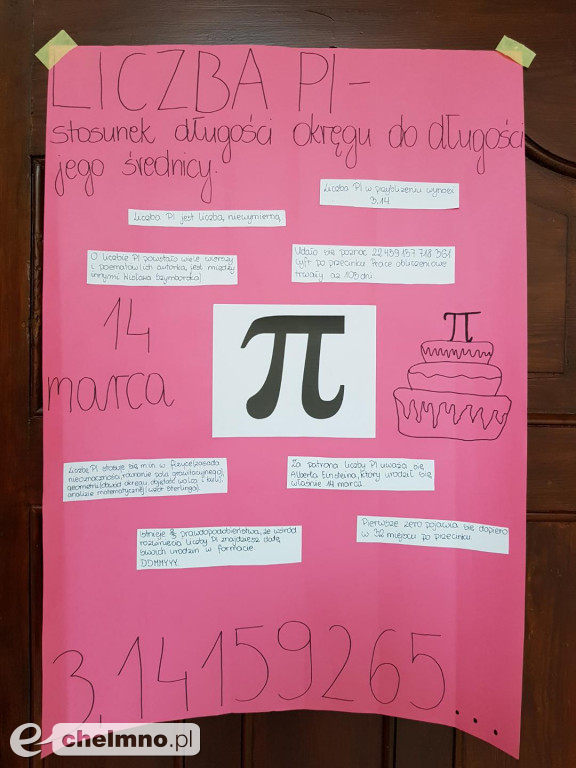 LICZBA PI -
stosunek długości okręgu do długości
jego średnicy.
Liczba PI w przybliżeniu wynosi
3,14
Liczba PI jest liczbą niewymierną
O liczbie PI powstało wiele wierszy
i poematów ich autorką jest między
innymi Wisława Szymborska
Udało się poznać 22 459 157 718 361
cyfr po przecinku. Prace obliczeniowe
trwały aż 105 dni
14
marca
π
π
Liczbę PI stosuje się m.in. w fizyce (zasada
nieoznaczoności, równanie pola grawitacyjnego),
geometrii (obwód okręgu, objętość walca i kuli),
analizie matematycznej (wzór Sterlinga).
Za patrona liczby PI uważa się
Alberta Einsteina, który urodził się
właśnie 14 marca
Istnieje prawdopodobieństwo, że wśród
rozwinięcia liczby PI znajdziesz datę
swoich urodzin w formacie.
DDMMYYY.
Pierwsze zero pojawia się dopiero
w 32 miejscu po przecinku.
3,14159265...
e-chelmno.pl